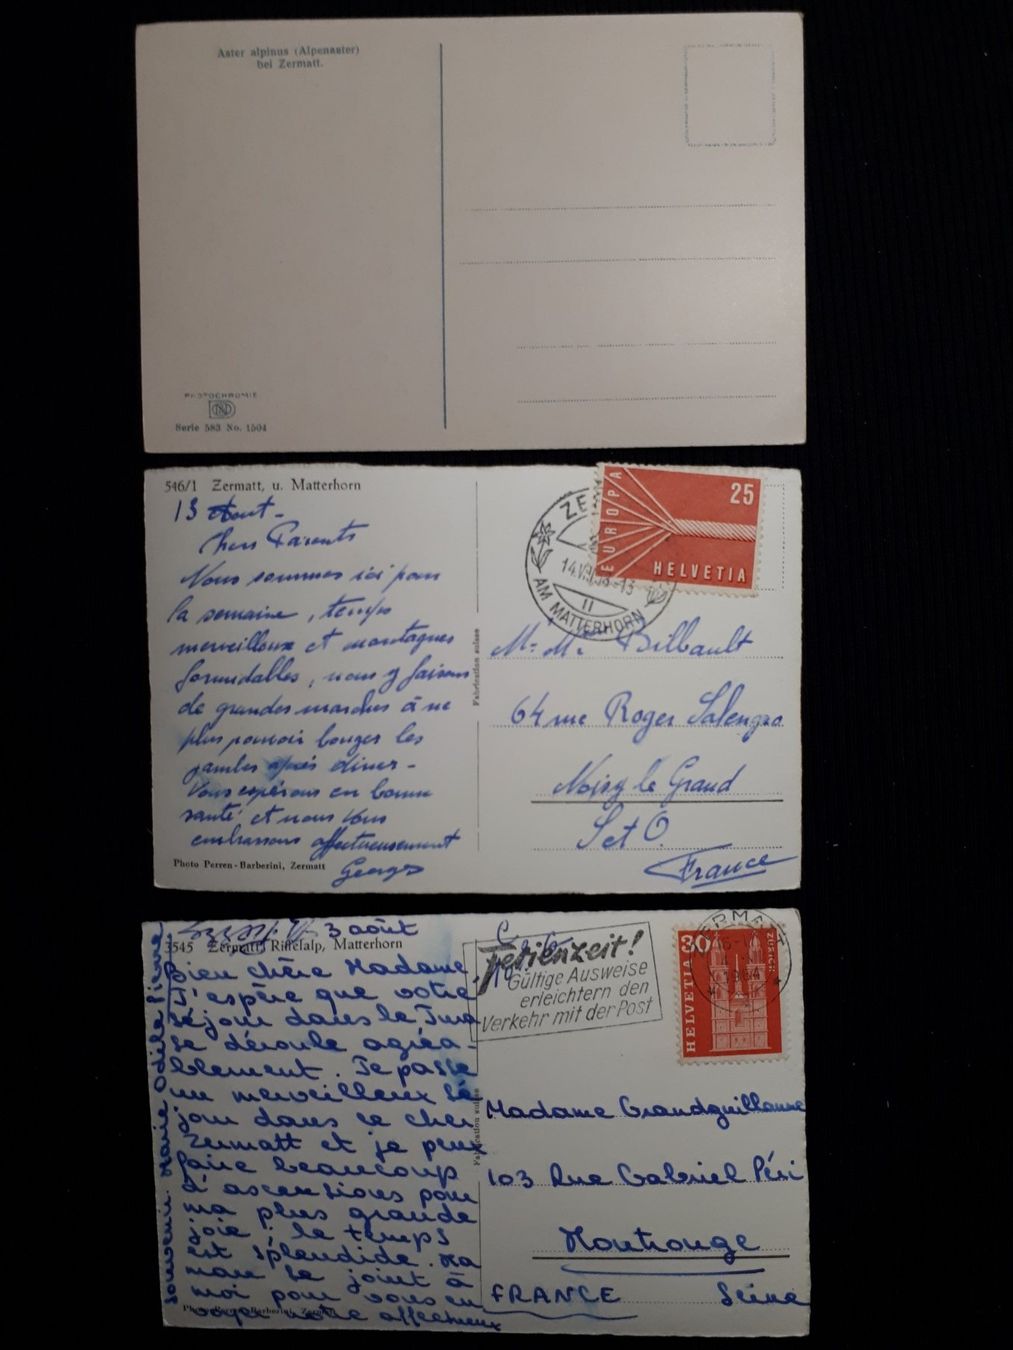 Aster alpinus (Alpenaster)
bei Zermatt.
PHOTOCHROMIE
Serie 583 No. 1504
546/1 Zermatt, u. Matterhorn
13 Aout -
Chers Parents
Nous sommes ici pour
la semaine, temps
merveilleux et montagnes
formidables, nous y faisons
de grandes marches à ne
plus pouvoir bouger les
jambes après diner -
Vous espérons en bonne
santé et nous vous
embrassons affectueusement
Georges
Photo Perren-Barberini, Zermatt
Fabrication suisse
AM MATTERHORN
EUROPA
25
HELVETIA
M. Mr Billbault
64 rue Roger Salengro
Noisy le Grand
Set O.
France
3 août
3545 Zermatt, Riffelalp, Matterhorn
Bien chère Madame
J'espère que votre
séjour dans le Jura
se déroule agréa-
blement. Je passe
un merveilleux sé
jour dans ce cher
Zermatt et je peux
faire beaucoup
d'ascensions pour
ma plus grande
joie : le temps
est splendide. Ma
man se joint à
moi pour vous en
voyer notre affectueux
souvenir. Marie Odile Pierre
Photo Perren-Barberini, Zermatt
Fabrication suisse
Ferienzeit!
Gültige Ausweise
erleichtern den
Verkehr mit der Post
ZERMATT
1964
30
HELVETIA
ZÜRICH
Madame Grandguillaume
103 Rue Gabriel Péri
Montrouge
FRANCE Seine